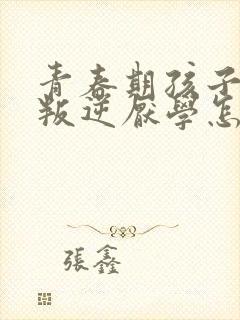 青春期孩子
叛逆厭學怎
張鑫